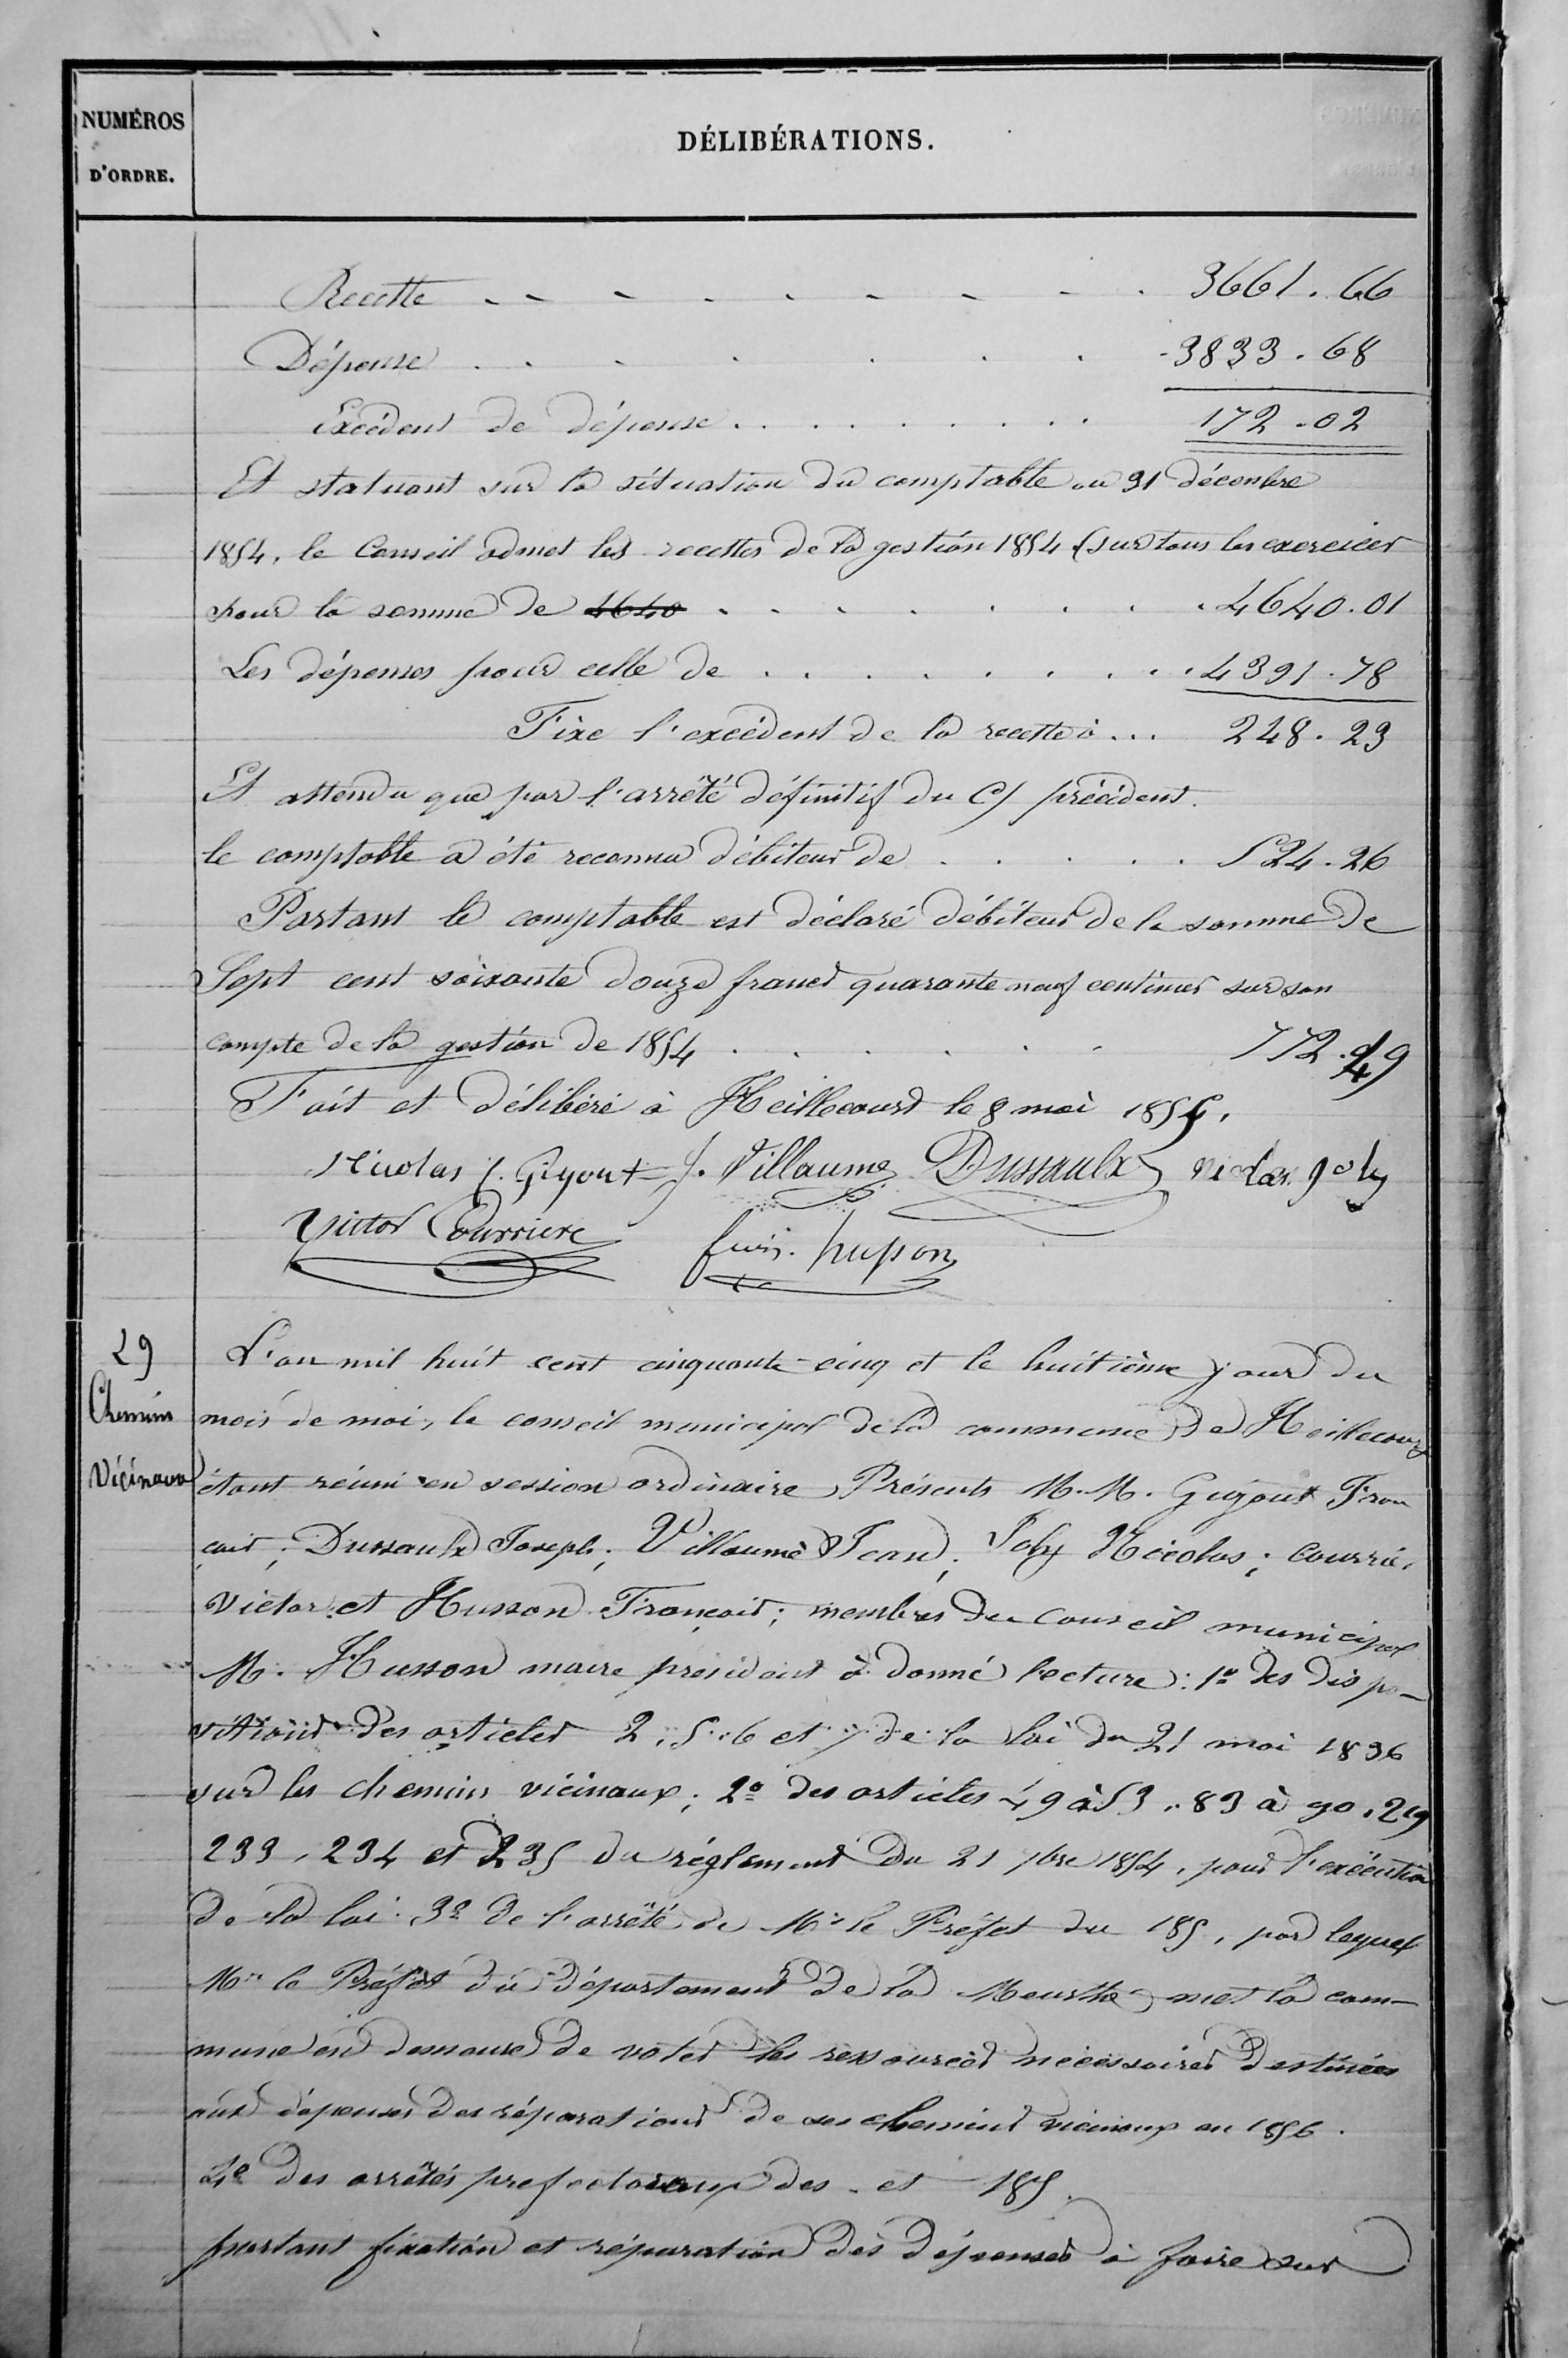 NUMÉROS
D'ORDRE.
DÉLIBÉRATIONS.
Recette - - - - - - - - . 3661.66
Dépense . . . . . . . 3833.68
Excédent de dépense . . . . . . . . 172.02
Et statuant sur la situation du comptable au 31 décembre
1854, le Conseil admet les recettes de la gestion 1854 (sur tous les exercices
pour la somme de 4640 . . . . . . . . 4640.01
Les dépenses pour celle de . . . . . . . . 4391.78
Fixe l'excédent de la recette à ... 248.23
Et attendu que par l'arrêté définitif du C/ précédent.
le comptable a été reconnu débiteur de . . . . . 524.26
Partant le comptable est déclaré débiteur de la somme de
Sept cent soixante douze francs quarante neuf centimes sur son
compte de la gestion de 1854 . . . . . . 772.49
Fait et délibéré à Heillecourt le 8 mai 1855.
Nicolas f. Guyout J. Villaume Dussaulx nicolas joly
Victor Courriere husson
29
Chemins
Vicinaux
L'an mil huit cent cinquante-cinq et le huitième jour du
mois de mai, le conseil municipal de la commune de Heillecourt
étant réuni en session ordinaire, Présents M.M. Guyout Fran
çois; Dussaulx Joseph; Villaumé Jean; Joly Nicolas; courriè.
Victor et Husson François; membres du conseil municipal
M. Husson maire président à donné lecture: 1º des dispo-
sitions des articles 2, 5, 6 et 7 de la loi du 21 mai 1836
sur les chemins vicinaux; 2º des articles 49 à 53, 83 à 90, 219
233, 234 et 235 du réglement du 21 7bre 1854, pour l'exécution
de la loi. 3º de l'arrêté de Mr le Préfet du 185, par lequel
Mr le Préfet du département de la Meurthe met la com-
mune en demeure de voter les ressources nécessaires destinées
aux dépenses des réparations de ses chemins vicinaux en 1856.
4º des arrêtés prefectoraux des - et 185.
portant fixation et réparation des dépenses à faire sur